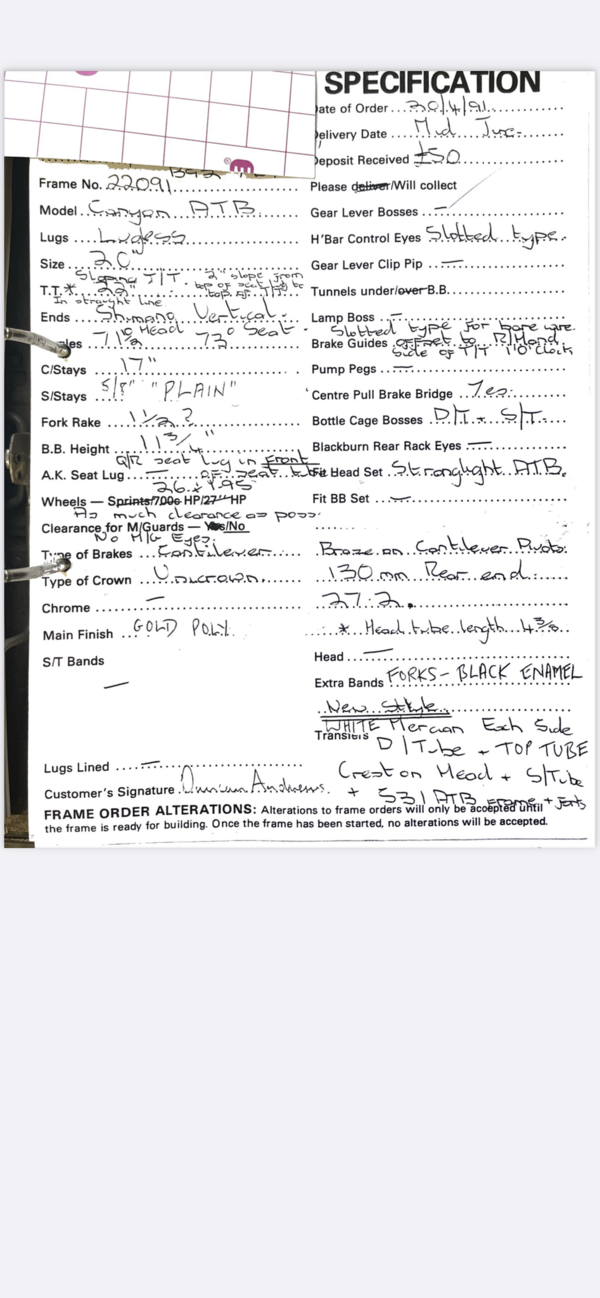 SPECIFICATION
ate of Order 20/4/91
elivery Date Mid June
eposit Received £50
Frame No. 22091
Please deliver/Will collect
Model Canyon ATB.
Gear Lever Bosses —
Lugs Lugless
H'Bar Control Eyes Slotted type.
Size 20"
Gear Lever Clip Pip —
Sloping T/T. 2" slope from
top of seat lug to
T.T.* 22"
top of
Tunnels under/over B.B.
In straight line
Ends Shimano Vertical.
Lamp Boss —
les 71° Head 73° Seat.
Slotted type for bare wire.
Brake Guides offset to R/Hand
side of T/T 1'O'clock
C/Stays 17"
Pump Pegs —
S/Stays 5/8" "PLAIN"
Centre Pull Brake Bridge Yes.
Fork Rake 1 1/2 ?
Bottle Cage Bosses D/T. + S/T.
B.B. Height 11 3/4"
Blackburn Rear Rack Eyes —
Q/R seat lug in Front
A.K. Seat Lug — of seat tube
Fit Head Set Stronglight ATB.
26 x 1.95
Wheels — Sprints/700c HP/27" HP
Fit BB Set —
As much clearance as poss.
Clearance for M/Guards — Yes/No
No M/G Eyes.
Type of Brakes Cantilever
Braze on Cantilever Pivots.
Type of Crown Unicrown.
130mm Rear end.
Chrome —
27.2.
Main Finish GOLD POLY.
* Head tube length 4 3/8
S/T Bands —
Head —
Extra Bands FORKS - BLACK ENAMEL
New Style
WHITE Mercian Each Side
Transfers D/Tube + TOP TUBE
Lugs Lined —
Crest on Head + S/Tube
Customer's Signature Duncan Andrews.
+ 531 ATB Frame + Forks
FRAME ORDER ALTERATIONS: Alterations to frame orders will only be accepted until
the frame is ready for building. Once the frame has been started, no alterations will be accepted.